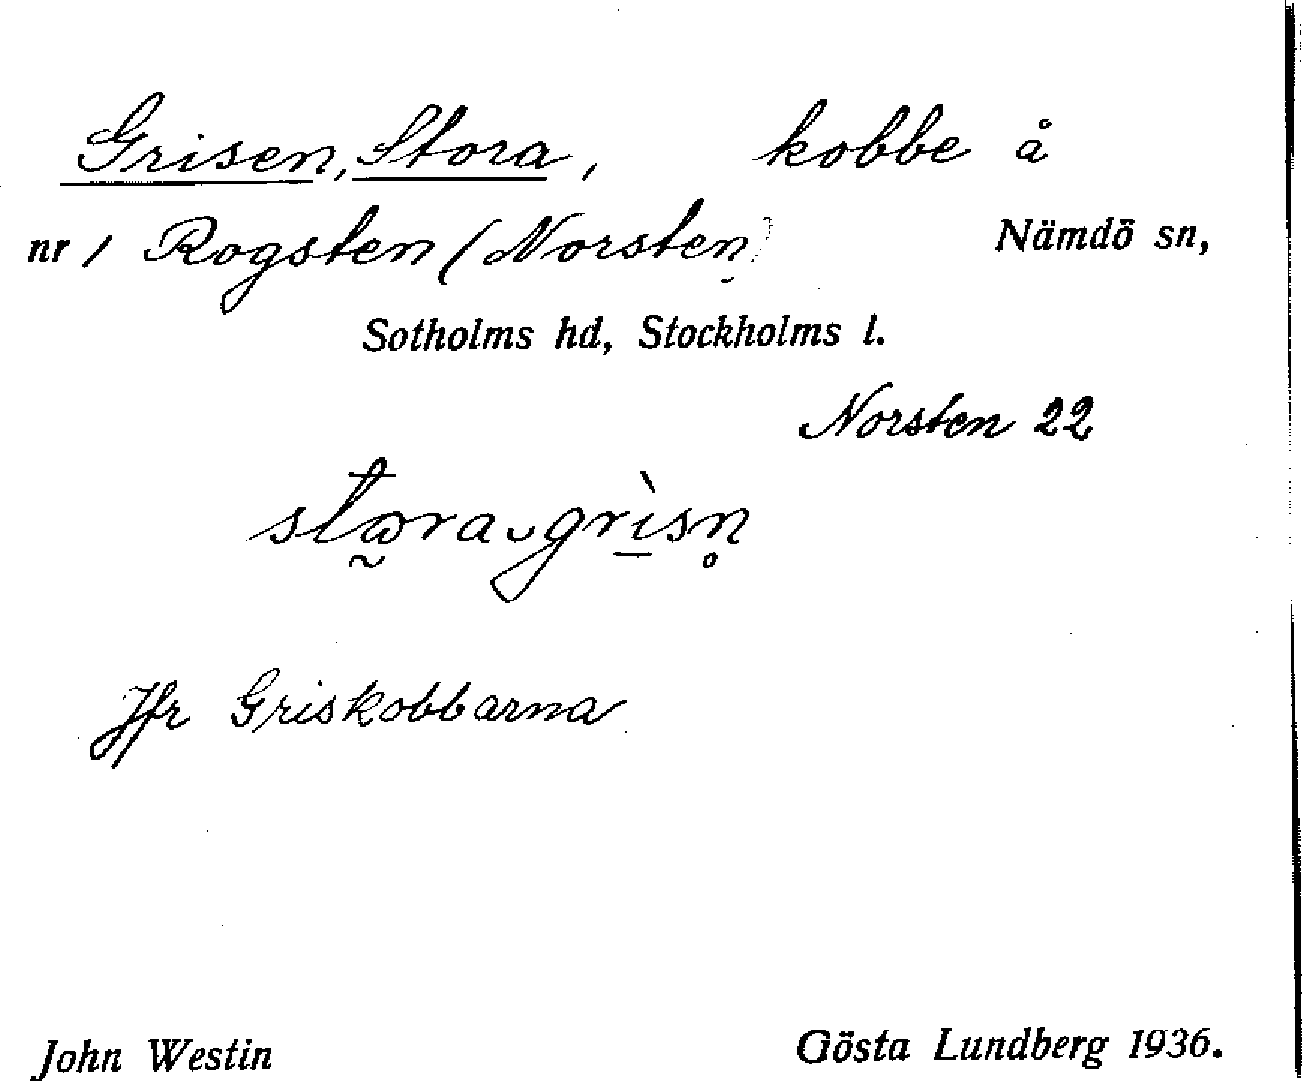 Grisen, Stora, kobbe å
nr 1 Rogsten (Norsten) Nämdö sn,
Sotholms hd, Stockholms l.
Norsten 22
Jfr Griskobbarna
John Westin Gösta Lundberg 1936.